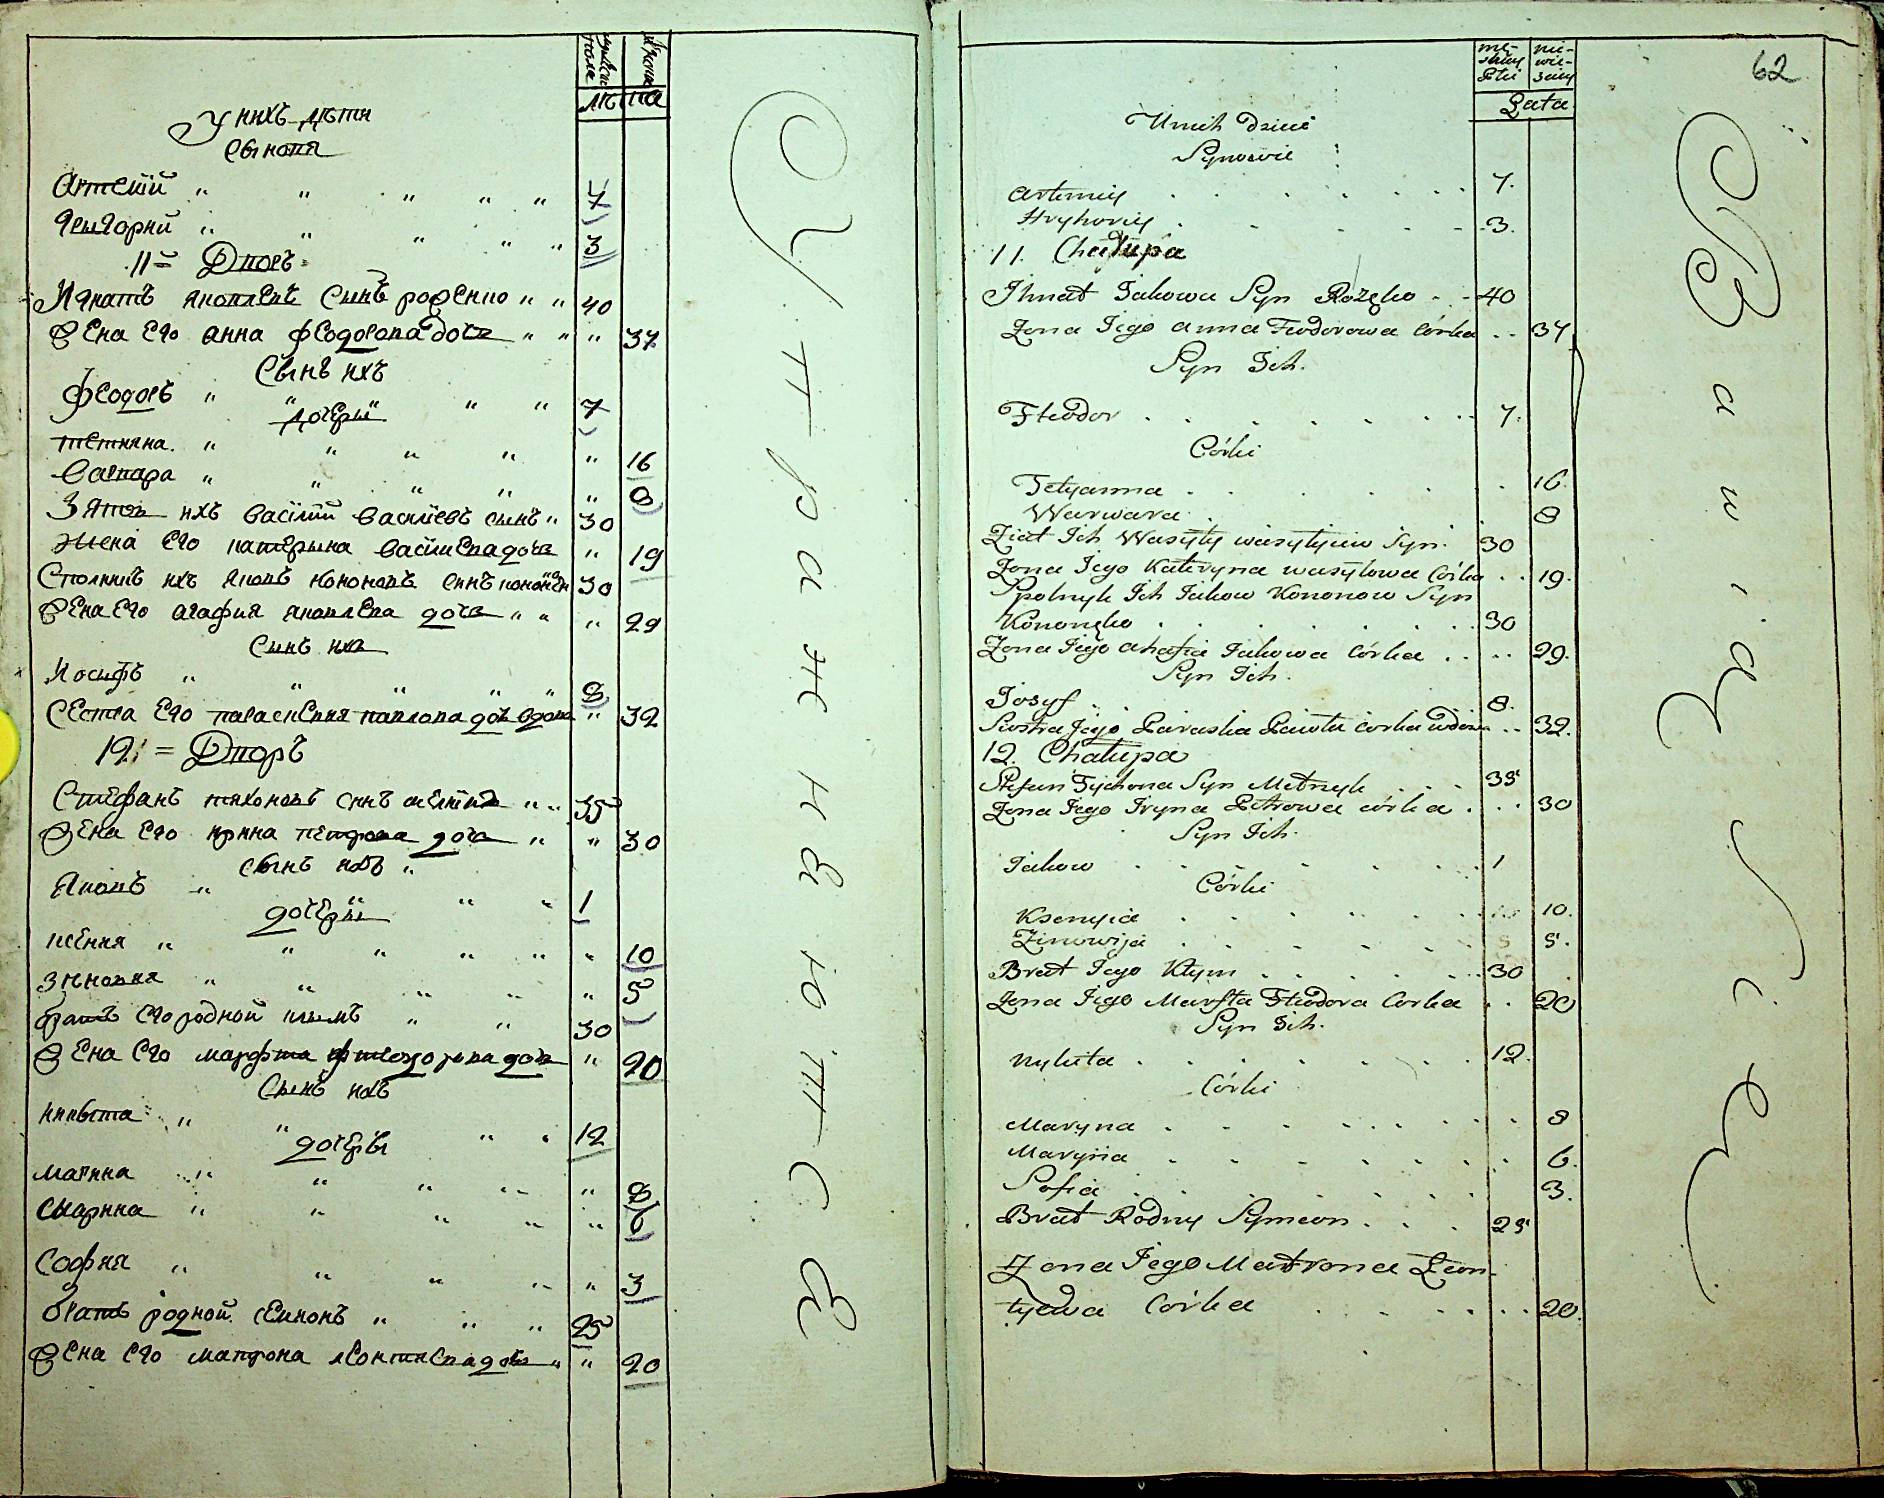 У нихъ дѣти
Сынопя
Артемiй " " " " " 7
Григорий " " " " " 3
11 = Дпоръ
Игнатъ япоплепъ Сынъ роженко " " 40
Жена Его анна феодоропа дочь " " " 37
Сынъ ихъ
Феодоръ " " " " 7
дочери
тетяна " " " " " 16
Варпара " " " " " 8
Зять ихъ Василiй Василiевъ сынъ " 30
жена Его катерына Василиепа дочь " 19
Спольникъ ихъ Якопъ кононопъ синъ 30
Жена Его агафия якоплепа дочь " " " 29
Сынъ ихъ
Иосифъ " " " " " 8
Сестра Его параскепия паплопа дочъ вдопа " 32
12 = Дпоръ
Стефанъ тихонопъ синъ " " 35
Жена Его ирина петропа дочь " " 30
сынъ ихъ "
Якопъ " " " " 1
дочери
ксения " " " " " " 10
зинопия " " " " " 5
братъ Его родной климъ " " 30
Жена Его марфта фтеодоропа дочь " 20
Сынъ ихъ
никыта " " " " 12
дочери
марина " " " " " 8
Марина " " " " " 6
София " " " " " 3
братъ родной Семионъ " " " 25
Жена Его матрона леонтиепа дочь " " 20
лѣта
У п р а ж н е ю т с е
62
mę-
skiey
Płci
nie-
wie-
sciey
Lata
U nich Dzieci
Synowie
Artemiy . . . . . . 7.
Hryhoriy . . . . . 3.
11. Chałupa
Ihnat Jakowa Syn Rożęko . - 40
Zona Jego anna Feodorowa Córka . . 37
Syn Ich.
Fteodor . . . . . . 7.
Córki
Tetyanna . . . . . . 16.
Warwara . . 8
Ziat Ich Wasyły wasylyiew Syn. 30
Zona Jego Kateryna wasylowa Córka . . 19.
Spolnyk Ich Jakow Kononow Syn
Kononęko . . . . . . 30
Zona Jego ahafia Jakowa Córka . . . . 29.
Syn Ich.
Josyf . . 8.
Siostra Jego Paraska Pawła Corka wdowa . . 32.
12. Chałupa
Stefan Tychona Syn Melnyk . . . 35
Zona Jego Iryna Petrowa córka . . . 30
Syn Ich.
Jakow . . . . . . 1
Córki
Ksenyia . . . . . . 10.
Zinowija . . . . . . 5.
Brat Jego Kłym . . . . . . 30
Zona Jego Marfta Fteodora Corka . . 20
Syn Ich.
Nykita . . . . . . 12.
Córki
Maryna . . . . . . 8
Maryna . . . . . . 6.
Sofia . . . . . . 3.
Brat Rodny Symeon . . . 25
Zona Jego Matrona Leon-
tyewa Córka . . . . . 20.
B a w i ą S i ę